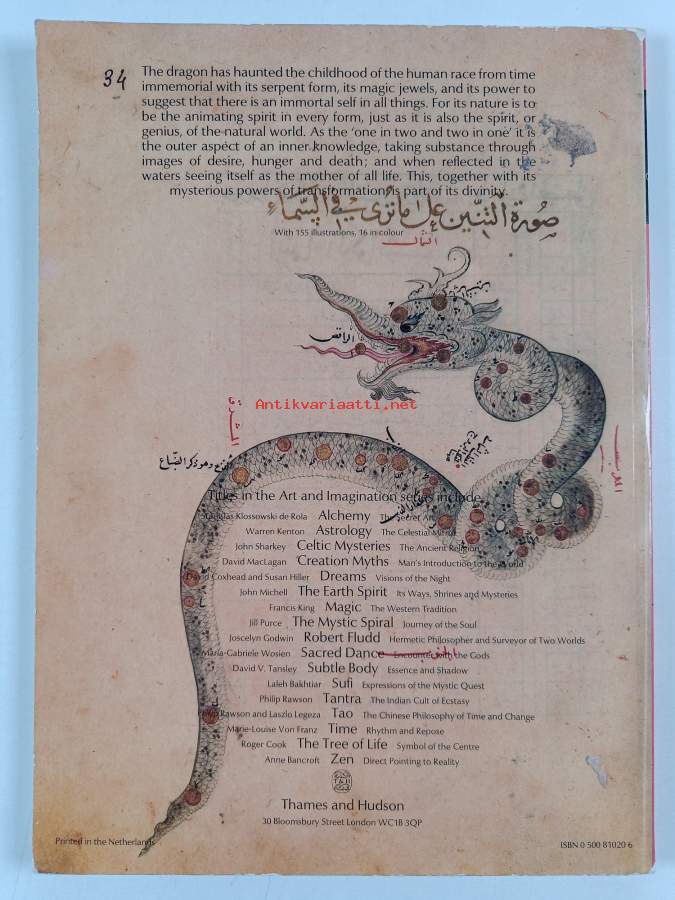 34
The dragon has haunted the childhood of the human race from time
immemorial with its serpent form, its magic jewels, and its power to
suggest that there is an immortal self in all things. For its nature is to
be the animating spirit in every form, just as it is also the spirit, or
genius, of the natural world. As the ‘one in two and two in one’ it is
the outer aspect of an inner knowledge, taking substance through
images of desire, hunger and death; and when reflected in the
waters seeing itself as the mother of all life. This, together with its
mysterious powers of transformation, is part of its divinity.
صورة التنين على ما ترى في السماء
With 155 illustrations, 16 in colour
الشمال
الراقص
Antikvariaatti.net
المشرق
المغرب
Titles in the Art and Imagination series include
Stanislas Klossowski de Rola Alchemy The Secret Art
Warren Kenton Astrology The Celestial Mirror
John Sharkey Celtic Mysteries The Ancient Religion
David MacLagan Creation Myths Man's Introduction to the World
David Coxhead and Susan Hiller Dreams Visions of the Night
John Michell The Earth Spirit Its Ways, Shrines and Mysteries
Francis King Magic The Western Tradition
Jill Purce The Mystic Spiral Journey of the Soul
Joscelyn Godwin Robert Fludd Hermetic Philosopher and Surveyor of Two Worlds
Maria-Gabriele Wosien Sacred Dance Encounter with the Gods
الجنوب
David V. Tansley Subtle Body Essence and Shadow
Laleh Bakhtiar Sufi Expressions of the Mystic Quest
Philip Rawson Tantra The Indian Cult of Ecstasy
Philip Rawson and Laszlo Legeza Tao The Chinese Philosophy of Time and Change
Marie-Louise Von Franz Time Rhythm and Repose
Roger Cook The Tree of Life Symbol of the Centre
Anne Bancroft Zen Direct Pointing to Reality
Thames and Hudson
30 Bloomsbury Street London WC1B 3QP
Printed in the Netherlands
ISBN 0 500 81020 6